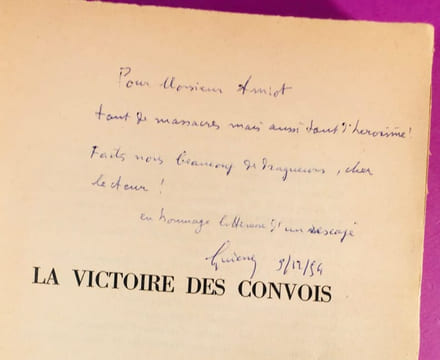 Pour Monsieur Amiot
tant de massacres mais aussi tant d'heroïsme!
Faits nous beaucoup de dragueurs, cher
lecteur!
en hommage littéraire d'un rescapé
9/12/54
LA VICTOIRE DES CONVOIS